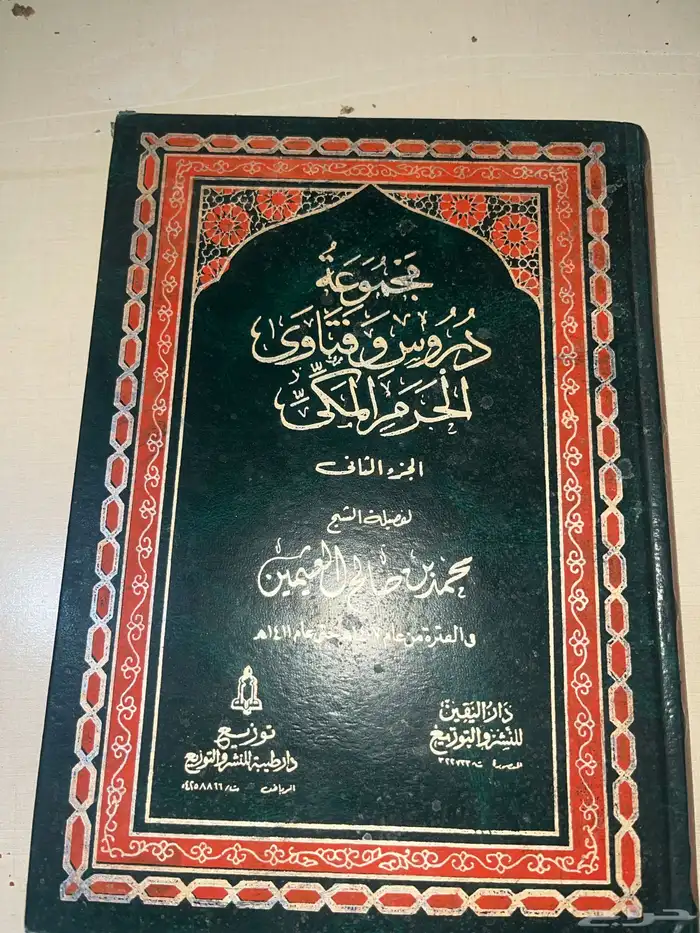 مَجْمُوعَةُ
دُرُوس وَفَتَاوَى
الحَرَم المَكِّىِّ
الجزء الثانى
لفضيلة الشيخ
محمد بن صالح العثيمين
فى الفترة من عام حتى عام ١٤١١هـ
دَارُ اليَقين
للنشر والتوزيع
المنصورة ت:
توزيع
دار طيبة للنشر والتوزيع
الرياض ت/ ٤٢٥٨٨٦٦
حراج